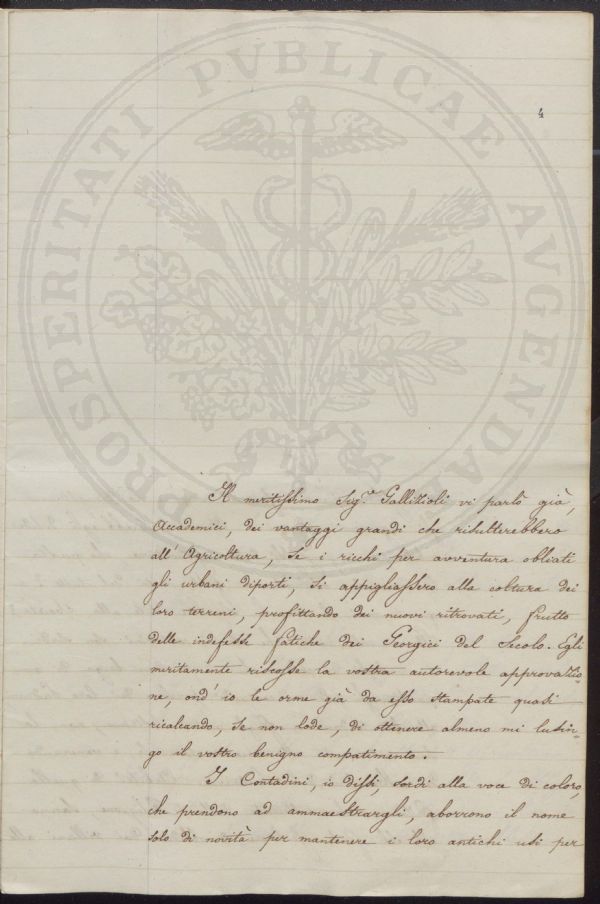 PROSPERITATI PVBLICAE AVGENDAE
4
Il meritissimo Sig.re Gallizioli vi parlò già,
Accademici, dei vantaggi grandi che risulterebbero
all' Agricoltura, se i ricchi per avventura obliati
gli urbani diporti, si appigliassero alla coltura dei
loro terreni, profittando dei nuovi ritrovati, frutto
delle indefesse fatiche dei Georgici del Secolo. Egli
meritamente riscosse la vostra autorevole approvazio-
ne, ond' io le orme già da esso stampate quasi
ricalcando, se non lode, di ottenere almeno mi lusin-
go il vostro benigno compatimento.
I Contadini, io dissi, sordi alla voce di coloro,
che prendono ad ammaestrargli, aborrono il nome
solo di novità per mantenere i loro antichi usi per